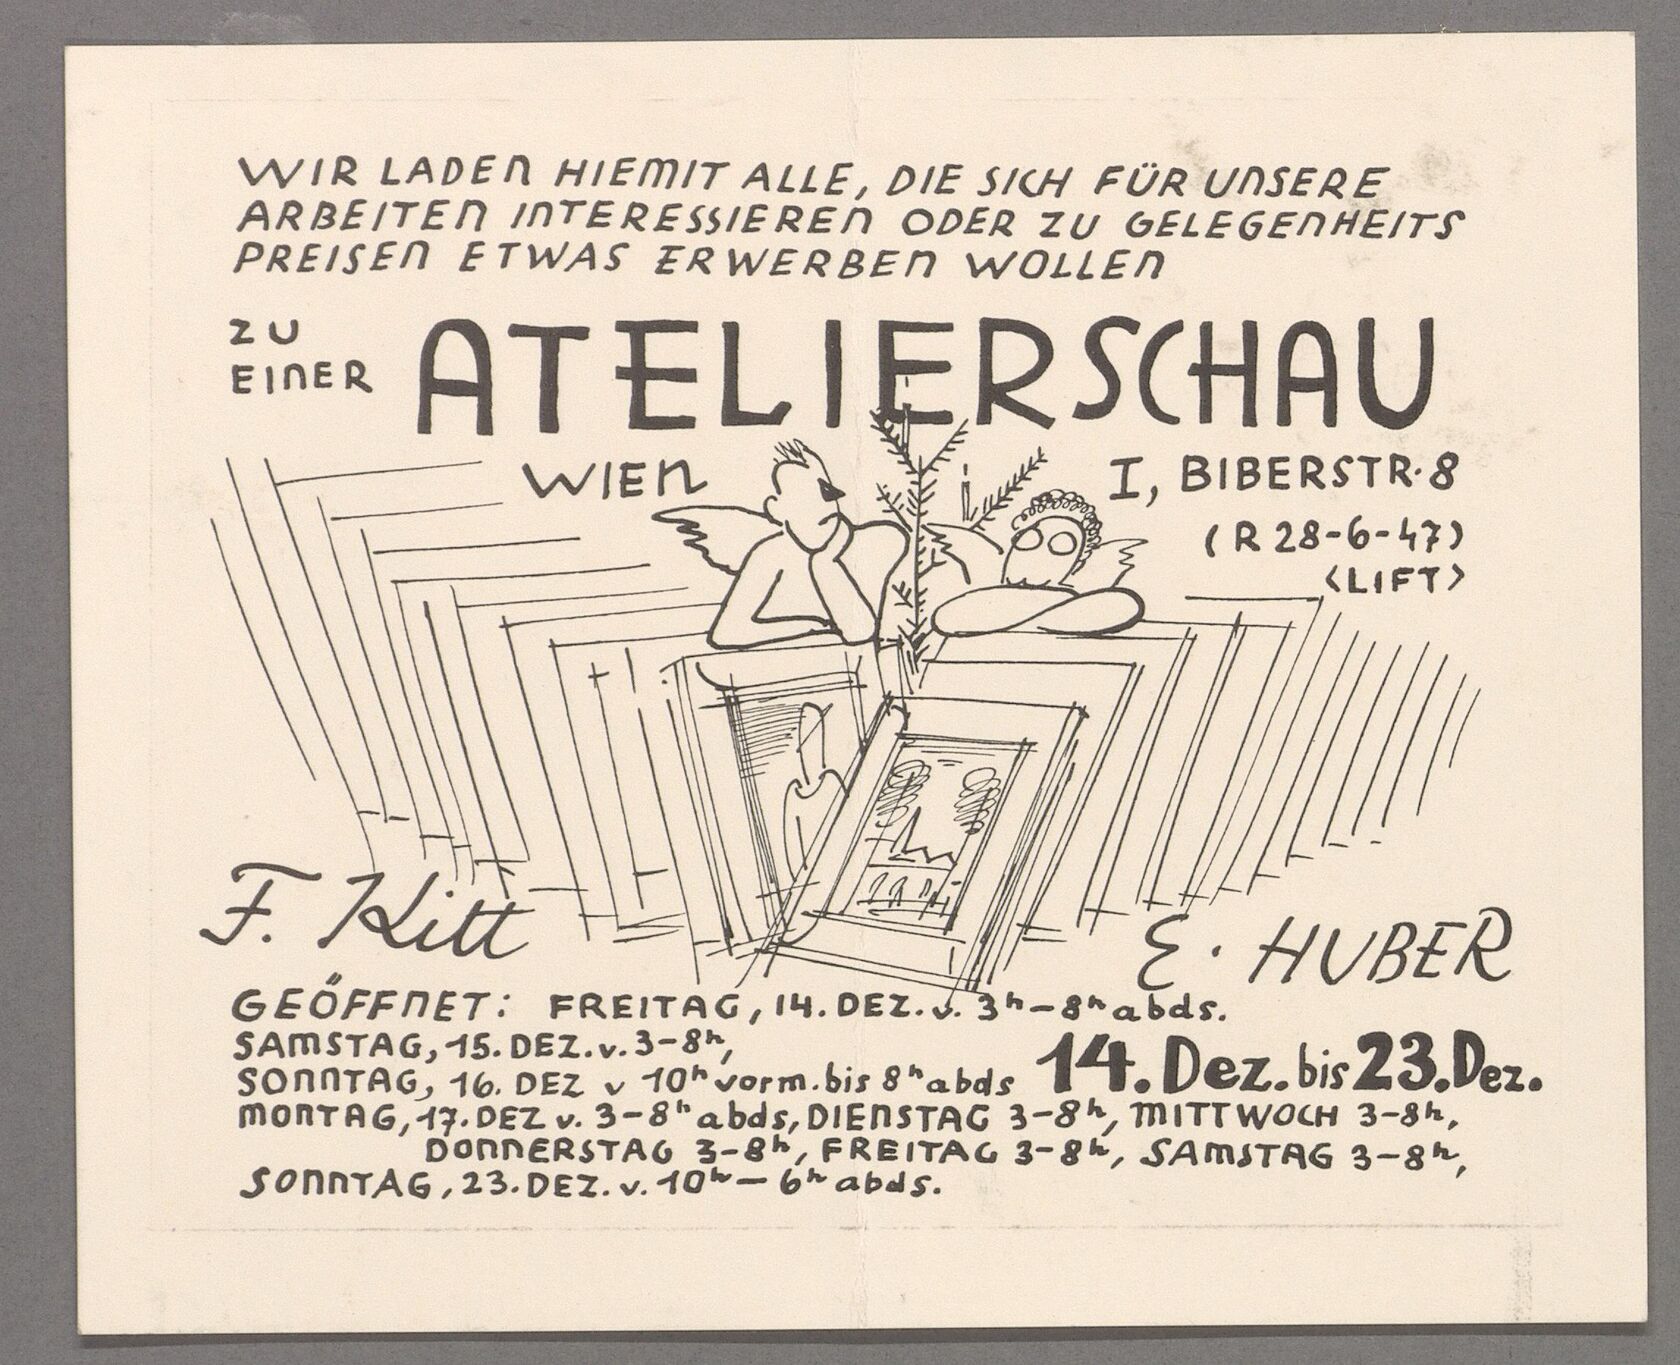 WIR LADEN HIEMIT ALLE, DIE SICH FÜR UNSERE
ARBEITEN INTERESSIEREN ODER ZU GELEGENHEITS
PREISEN ETWAS ERWERBEN WOLLEN
ZU
EINER ATELIERSCHAU
WIEN I, BIBERSTR. 8
(R 28-6-47)
<LIFT>
F. Kitt
E. HUBER
GEÖFFNET: FREITAG, 14. DEZ. v. 3h-8h abds.
SAMSTAG, 15. DEZ. v. 3-8h,
SONNTAG, 16. DEZ v 10h vorm. bis 8h abds
14. Dez. bis 23. Dez.
MONTAG, 17. DEZ v. 3-8h abds, DIENSTAG 3-8h, MITTWOCH 3-8h,
DONNERSTAG 3-8h, FREITAG 3-8h, SAMSTAG 3-8h,
SONNTAG, 23. DEZ. v. 10h-6h abds.